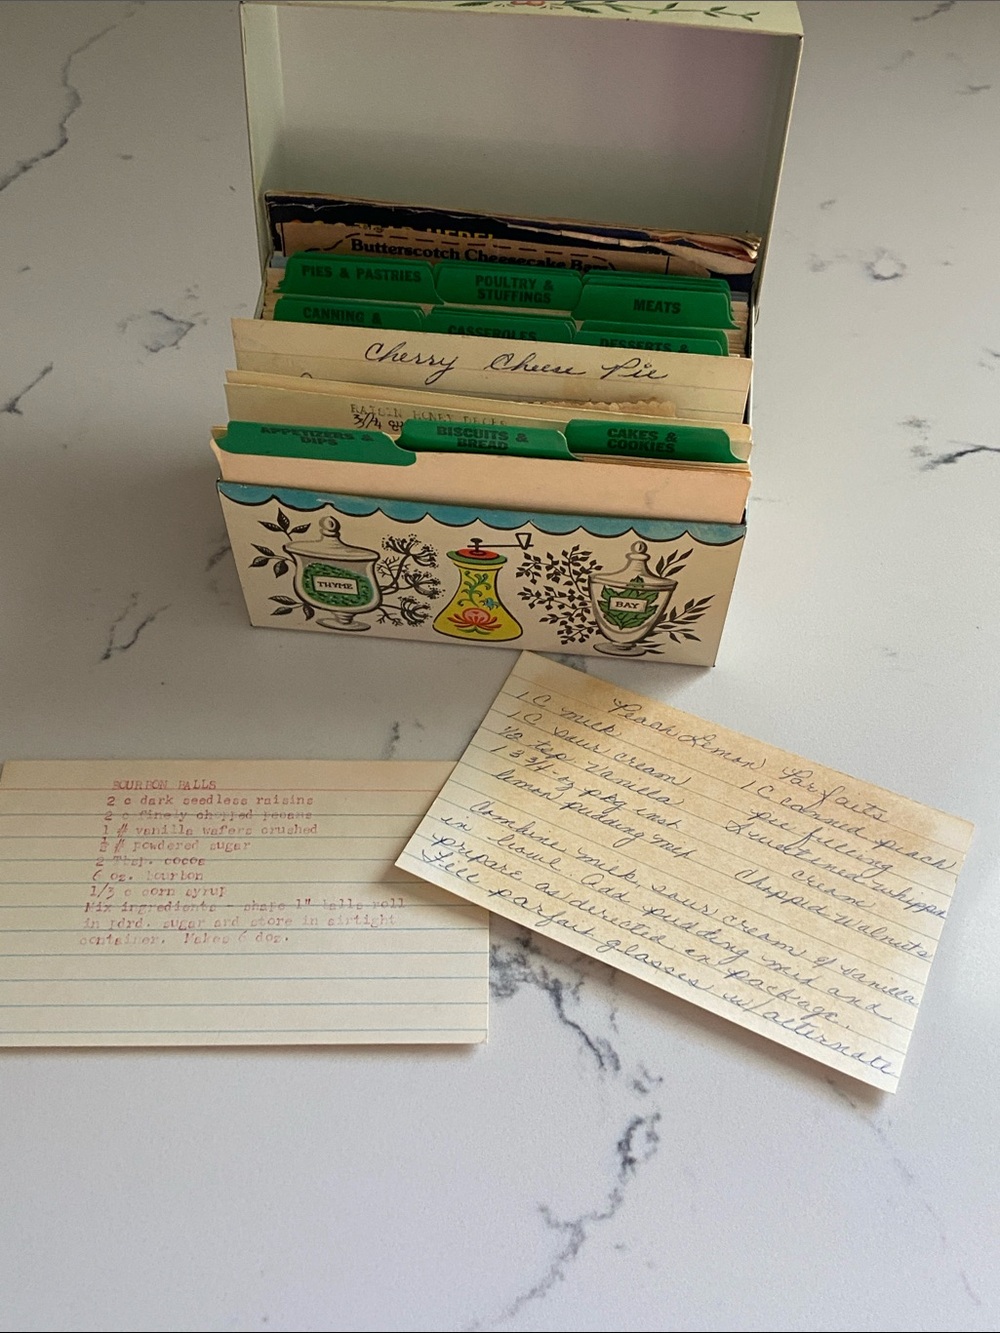 Butterscotch Cheesecake Bars
PIES & PASTRIES
POULTRY &
STUFFINGS
MEATS
CANNING &
CASSEROLES
DESSERTS &
Cherry Cheese Pie
RAISIN HONEY
3/4
APPETIZERS &
DIPS
BISCUITS &
BREAD
CAKES &
COOKIES
THYME
BAY
BOURBON BALLS
2 c dark seedless raisins
2 c finely chopped pecans
1 # vanilla wafers crushed
½ # powdered sugar
2 Tbsp. cocoa
6 oz. bourbon
1/3 c corn syrup
Mix ingredients - shape 1" balls roll
in pdrd. sugar and store in airtight
container. Makes 6 doz.
Peach Lemon Parfaits
1 C milk
1 C sour cream
½ tsp vanilla
1 3 3/4-oz pkg inst
lemon pudding mix
1 C canned peach
pie filling
Sweetened whipped
cream
Chopped Walnuts
Combine milk, sour cream & vanilla
in bowl. Add pudding mix and
prepare as directed on package.
Fill parfait glasses w/ alternate